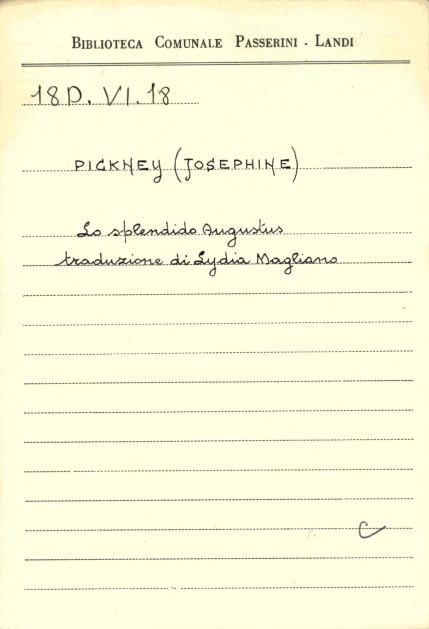 BIBLIOTECA COMUNALE PASSERINI - LANDI
18D. VI. 18
PICKNEY (JOSEPHINE)
Lo splendido Augustus
traduzione di Lydia Magliano
C